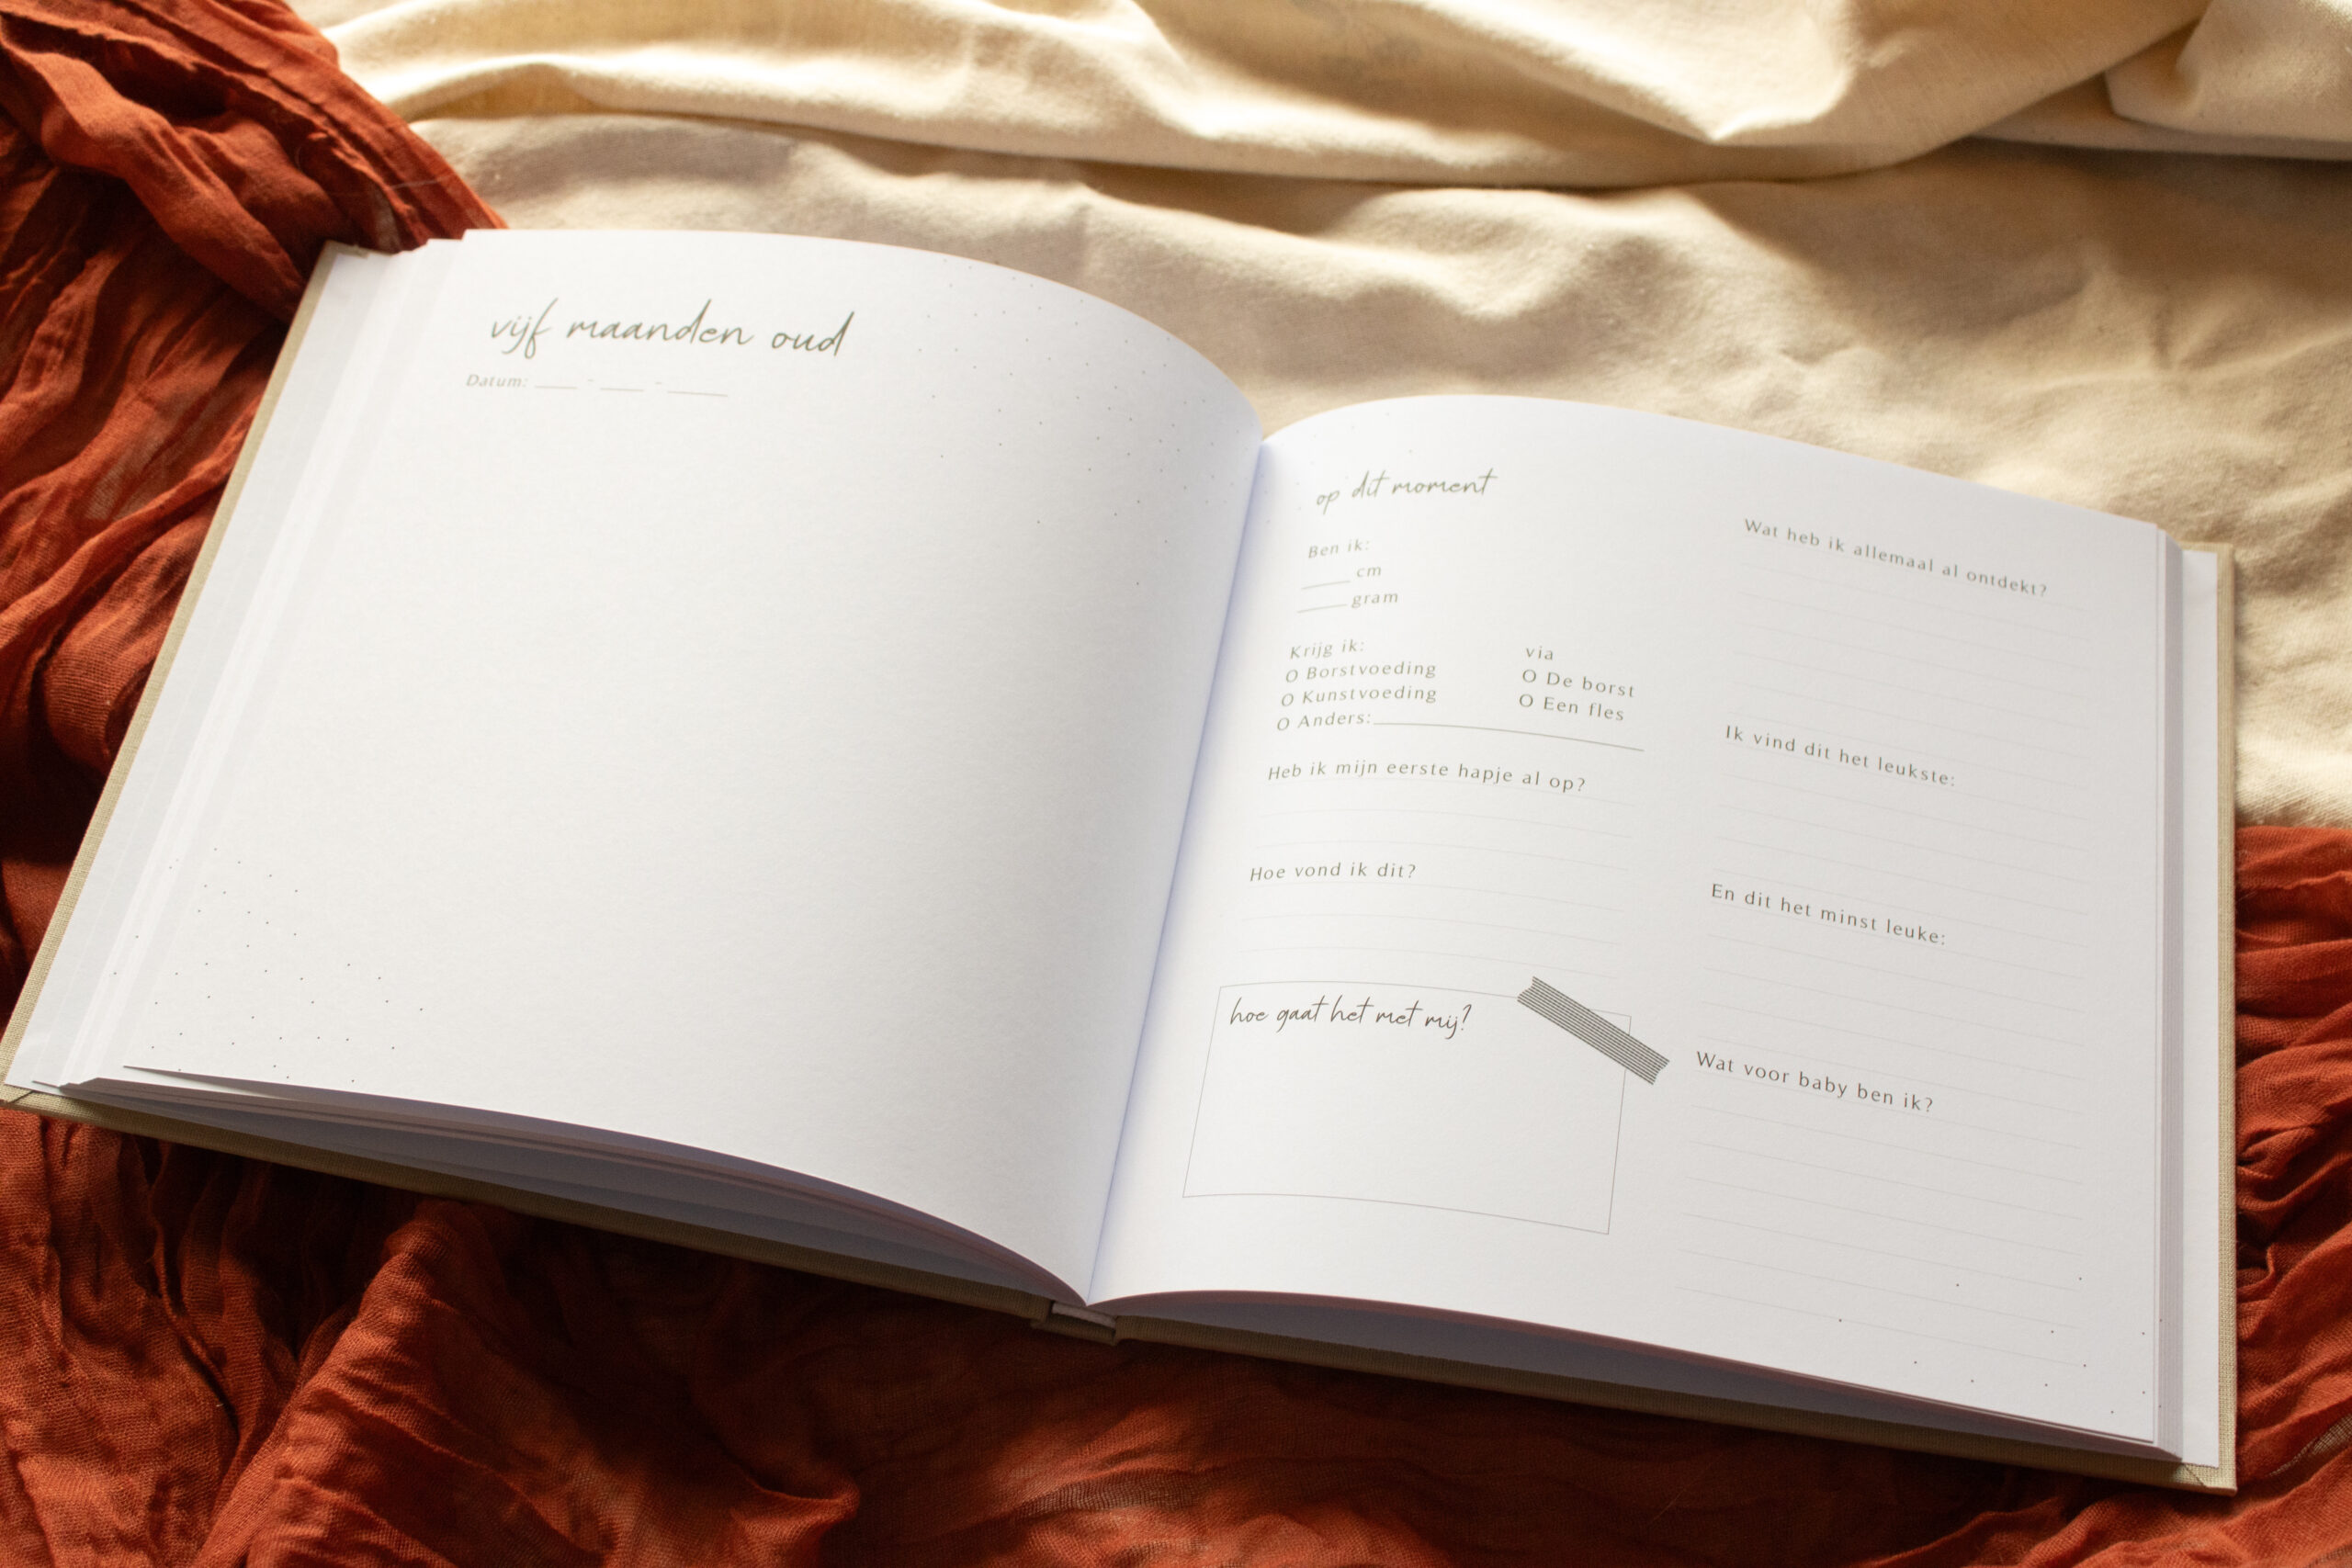 vijf maanden oud
Datum: ____ - ____ - ____
op dit moment
Ben ik:
____ cm
____ gram
Krijg ik:
O Borstvoeding
O Kunstvoeding
O Anders:____
via
O De borst
O Een fles
Heb ik mijn eerste hapje al op?
Hoe vond ik dit?
hoe gaat het met mij?
Wat heb ik allemaal al ontdekt?
Ik vind dit het leukste:
En dit het minst leuke:
Wat voor baby ben ik?